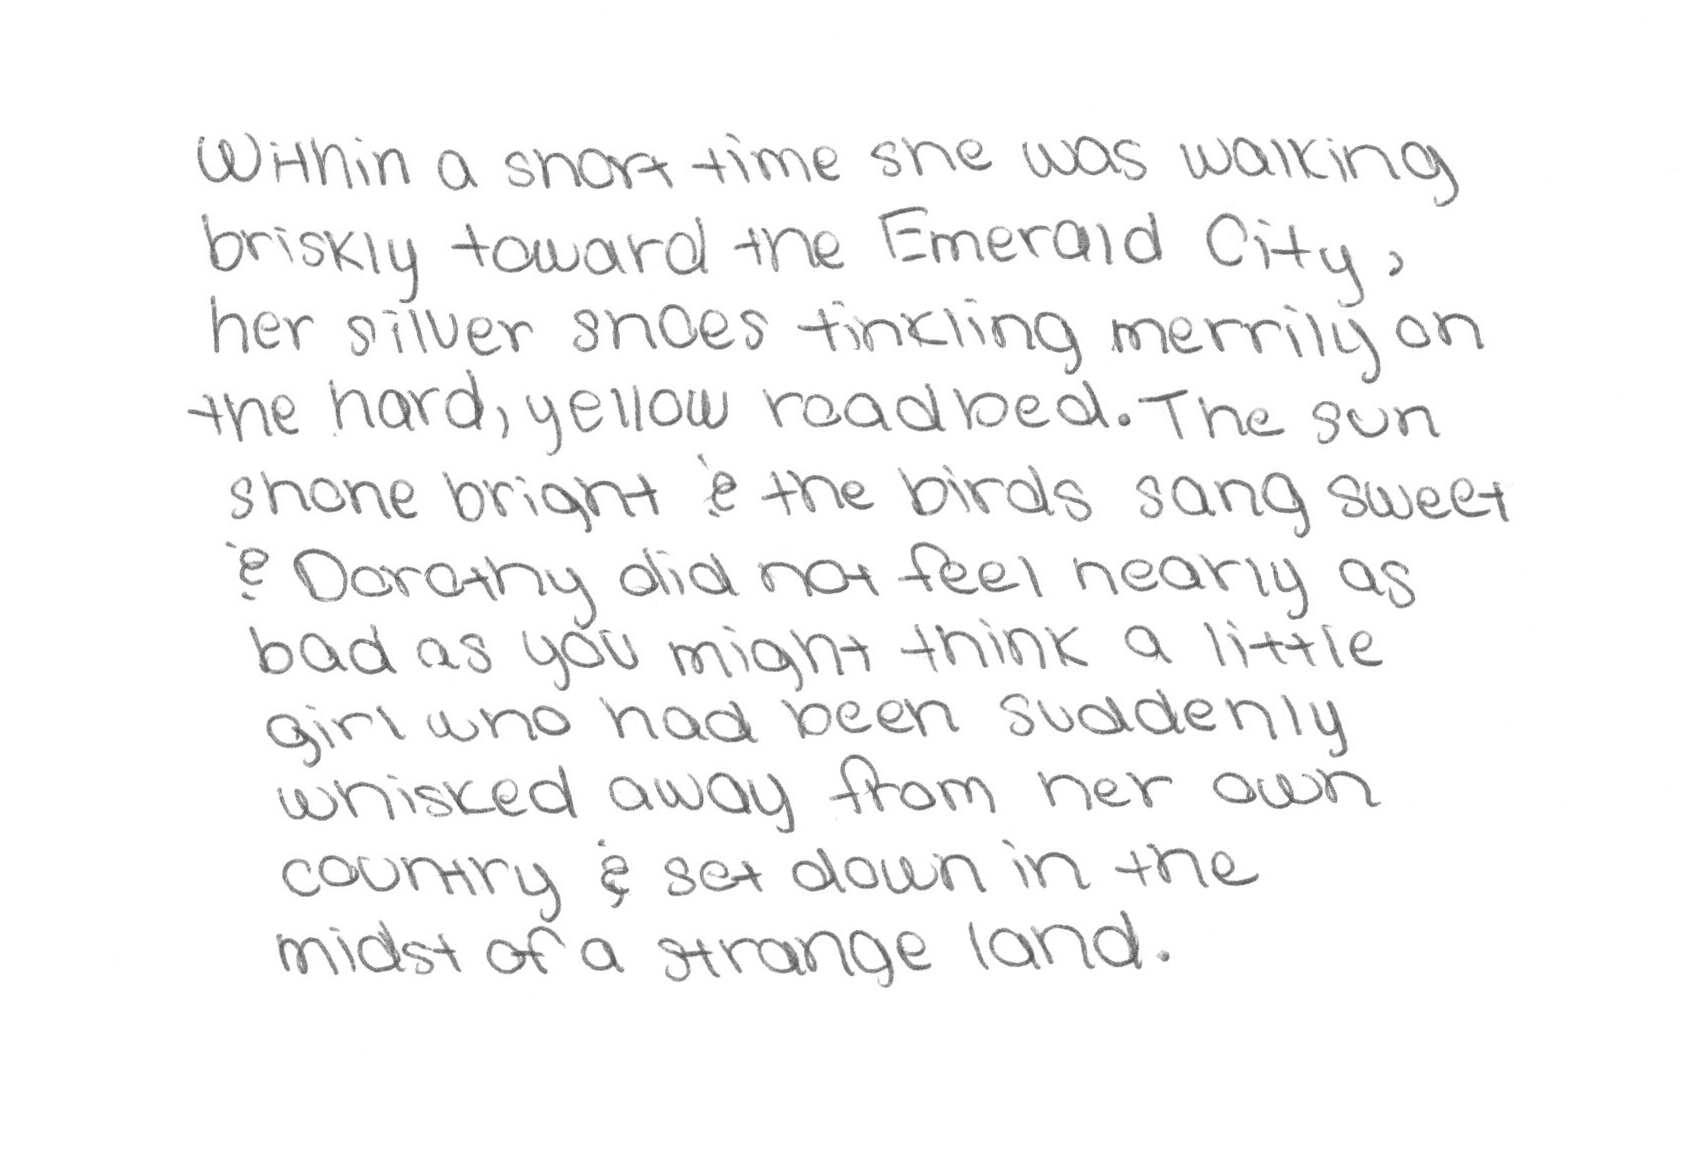 Within a short time she was walking
briskly toward the Emerald City,
her silver shoes tinkling merrily on
the hard, yellow roadbed. The sun
shone bright & the birds sang sweet
& Dorothy did not feel nearly as
bad as you might think a little
girl who had been suddenly
whisked away from her own
country & set down in the
midst of a strange land.